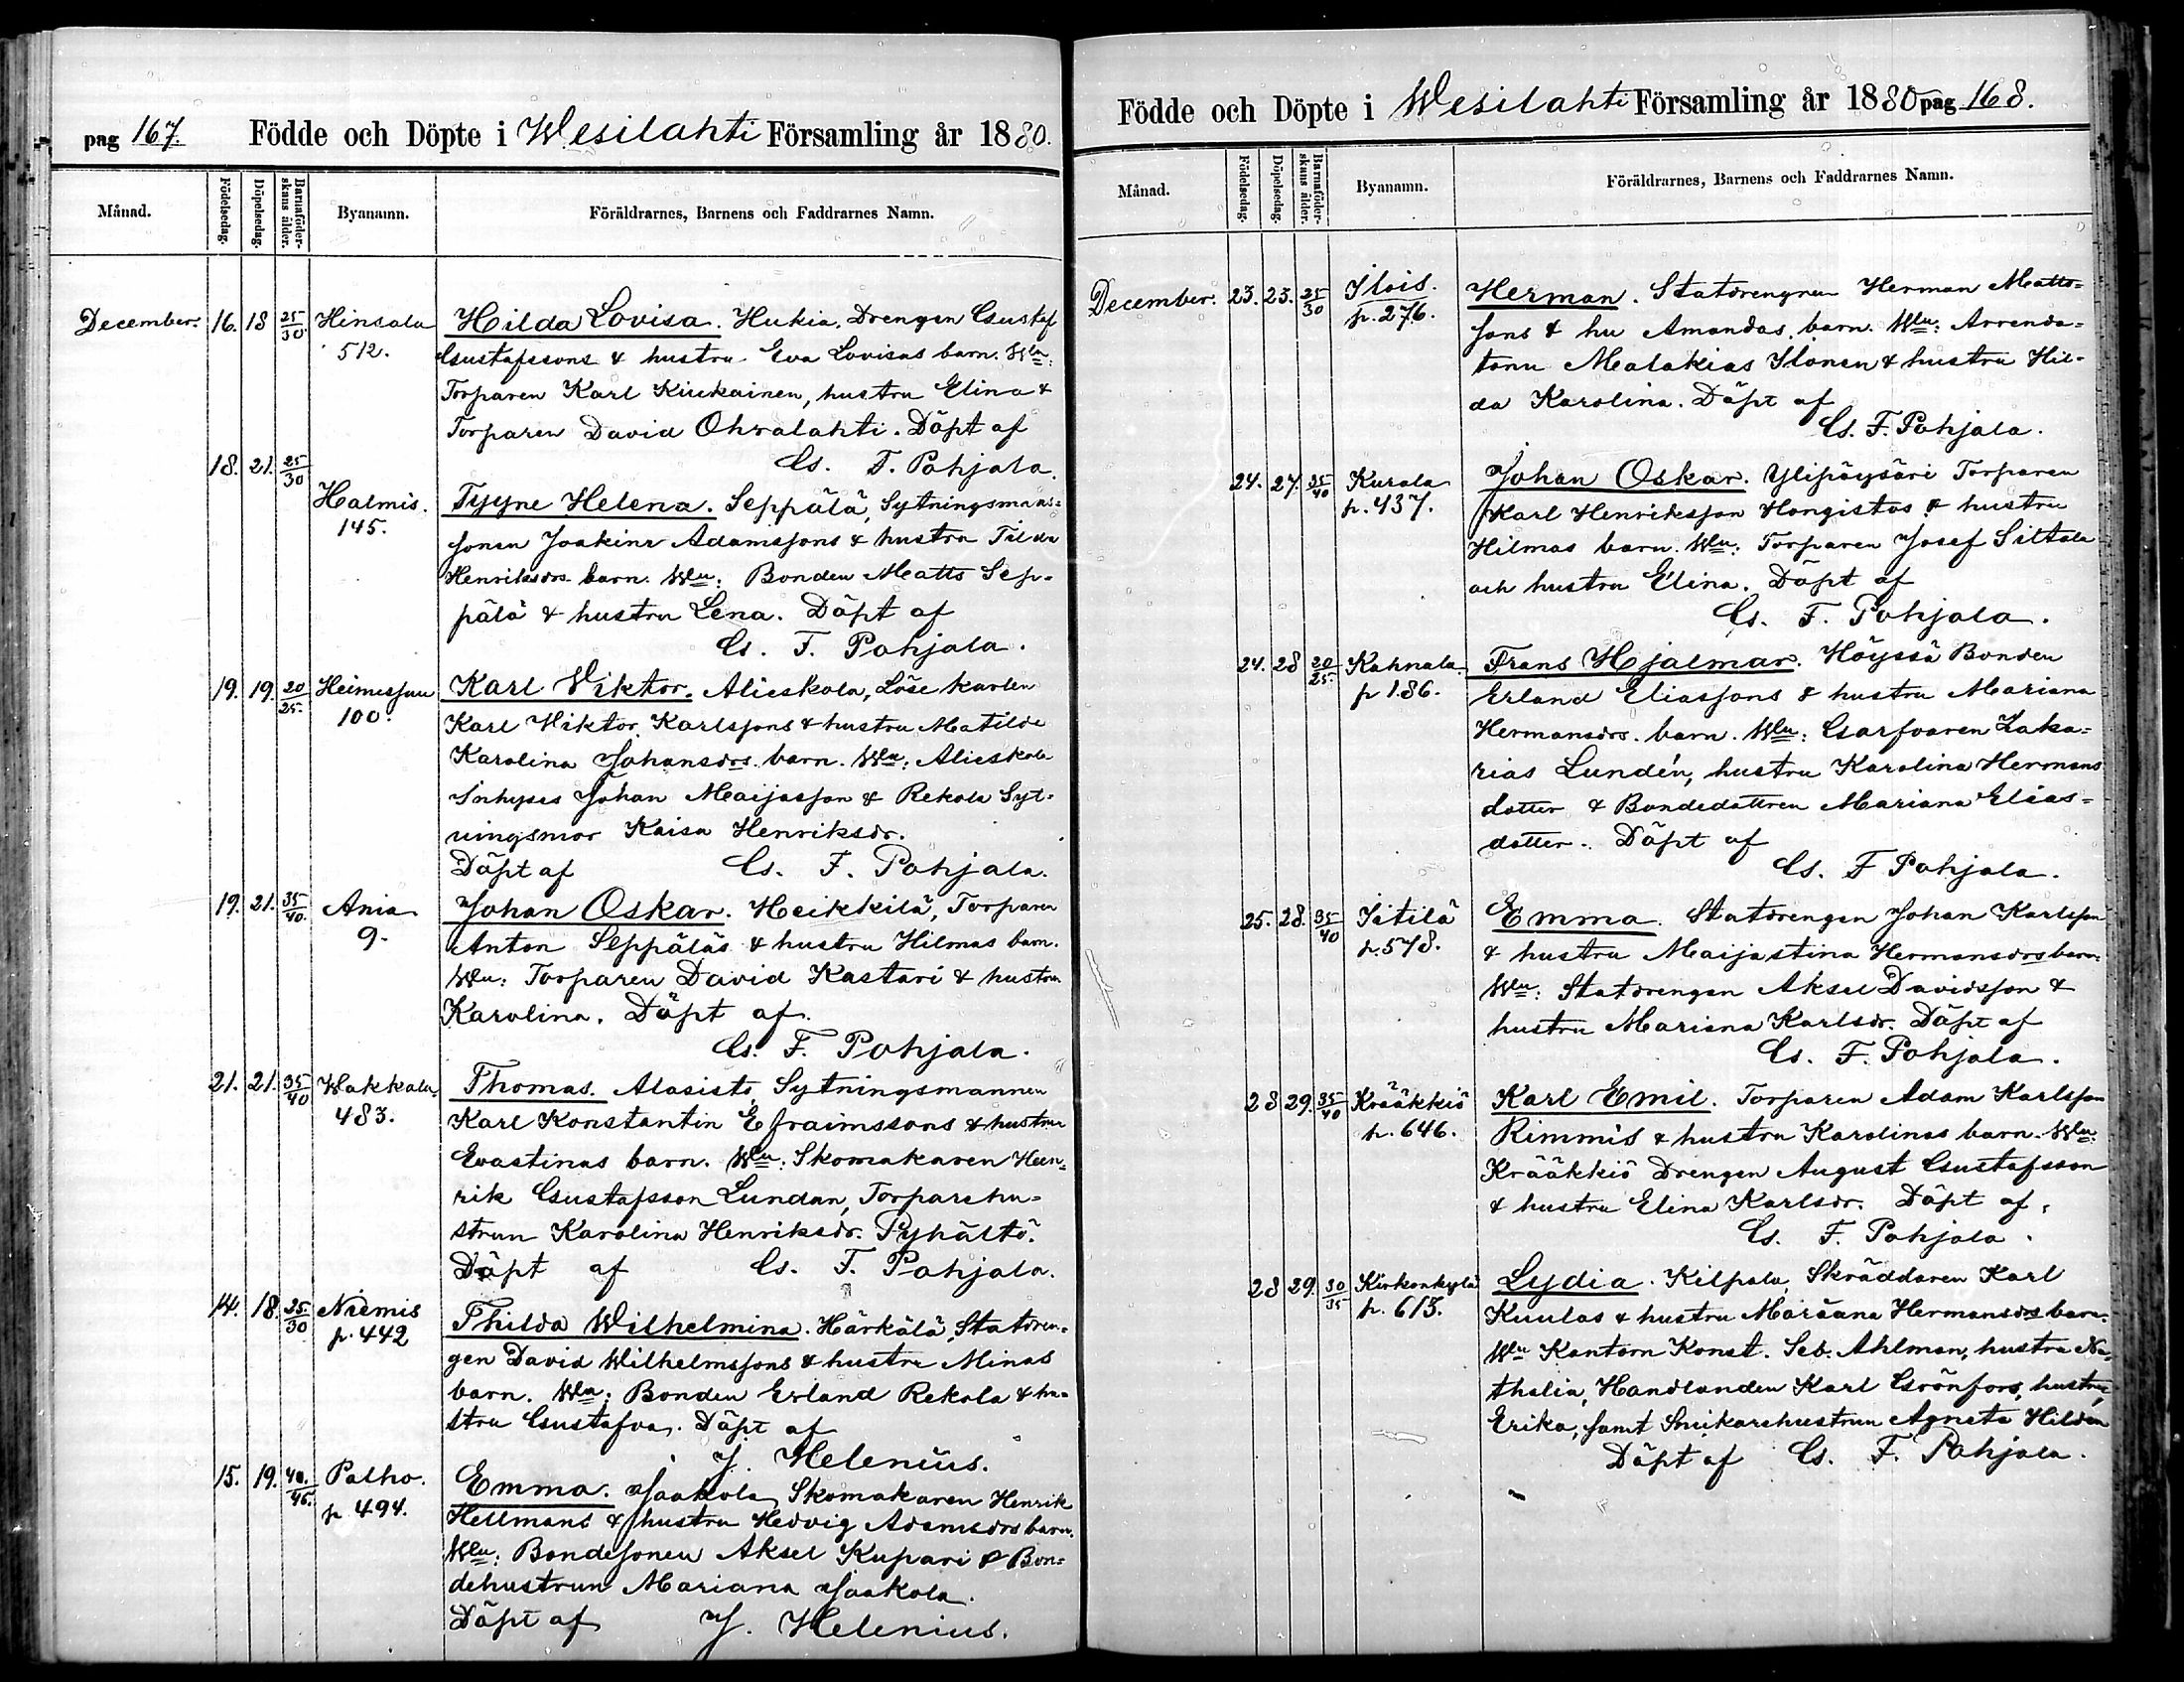 pag 167. Födde och Döpte i Wesilahti Församling år 1880.
Månad. Födelsedag. Döpelsedag. Barnaföderskans ålder. Byanamn. Föräldrarnes, Barnens och Faddrarnes Namn.
December. 16. 18 25/30 Hinsala Hilda Lovisa. Hukia, Drengen Gustaf
512. Gustafssons & hustru Eva Lovisas barn. Wn:
Torparen Karl Kiukainen, hustru Elina &
Torparen David Ohralahti. Döpt af
18. 21. 25/30 Gs. F. Pohjala.
Halmis. Tyyne Helena. Seppälä, Sytningsmans-
145. sonen Joakim Adamssons & hustru Tilda
Henriksdrs barn. Wn: Bonden Matts Sep-
pälä & hustru Lena. Döpt af
Gs. F. Pohjala.
19. 19. 20/25 Heimesjuu Karl Viktor. Alieskola, Löse karlen
100. Karl Viktor Karlssons & hustru Matilda
Karolina Johansdrs barn. Wn: Alieskola
Inhyses Johan Maijasson & Rekola Syt-
ningsmor Kaisa Henriksdr.
Döpt af Gs. F. Pohjala.
19. 21. 35/40 Ania Johan Oskar. Heikkilä, Torparen
9. Anton Seppäläs & hustru Hilmas barn.
Wn: Torparen David Kastari & hustru
Karolina. Döpt af
Gs. F. Pohjala.
21. 21. 35/40 Wakkala Thomas. Alasisto, Sytningsmannen
483. Karl Konstantin Efraimssons & hustru
Evastinas barn. Wn: Skomakaren Hen-
rik Gustafsson Lundan, Torparehu-
strun Karolina Henriksdr. Pyhältö.
Döpt af Gs. F. Pohjala.
14. 18. 25/30 Niemis Thilda Wilhelmina. Härkälä, Statdren-
p. 442 gen David Wilhelmssons & hustru Minas
barn. Wn: Bonden Erland Rekola & hu-
stru Gustafva. Döpt af
J. Helenius.
15. 19. 40/45 Palho. Emma. Jaakola, Skomakaren Henrik
p. 494. Hellmans & hustru Hedvig Adamsdrs barn.
Wn: Bondesonen Aksel Kupari & Bon-
dehustrun Mariana Jaakola.
Döpt af J. Helenius.
Födde och Döpte i Wesilahti Församling år 1880 pag 168.
Månad. Födelsedag. Döpelsedag. Barnaföderskans ålder. Byanamn. Föräldrarnes, Barnens och Faddrarnes Namn.
December. 23. 23. 25/30 Ilois. Herman. Statdrengen Herman Matts-
p. 276. sons & hu Amandas barn. Wn: Arrenda-
torn Malakias Ilonen & hustru Hil-
da Karolina. Döpt af
Gs. F. Pohjala.
24. 27. 35/40 Kurala Johan Oskar. Ylipöysäri Torparen
p. 437. Karl Henriksson Hongistos & hustru
Hilmas barn. Wn: Torparen Josef Siltala
och hustru Elina. Döpt af
Gs. F. Pohjala.
24. 28 20/25 Kahnala Frans Hjalmar. Höyssä Bonden
p 186. Erland Eliassons & hustru Mariana
Hermansdrs. barn. Wn: Garfvaren Zaka-
rias Lundén, hustru Karolina Hermans
dotter & Bondedottren Mariana Elias-
dotter. Döpt af
Gs. F Pohjala.
25. 28. 35/40 Iitilä Emma. Statdrengen Johan Karlsson
p. 578. & hustru Maijastina Hermansdrs barn.
Wn: Statdrengen Aksel Davidsson &
hustru Mariana Karlsdr. Döpt af
Gs. F. Pohjala.
28 29. 35/40 Krääkkiö Karl Emil. Torparen Adam Karlsson
p. 646. Rimmis & hustru Karolinas barn. Wn:
Krääkkiö Drengen August Gustafsson
& hustru Elina Karlsdr. Döpt af
Gs. F. Pohjala.
28 29. 30/35 Kirkonkylä Lydia. Kilpala, Skräddaren Karl
p. 615. Kuulas & hustru Mariana Hermansdrs barn.
Wn Kantorn Konst. Seb. Ahlman, hustru Na-
thalia, Handlanden Karl Grönfors, hustru
Erika, samt Snikarehustrun Agneta Hildén
Döpt af Gs. F. Pohjala.